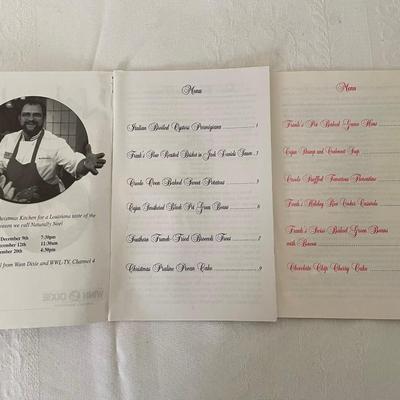 Christmas Kitchen for a Louisiana taste of the
season we call Naturally Noel
December 9th 7:30pm
December 12th 11:30am
December 20th 4:30pm
from Winn Dixie and WWL-TV, Channel 4
WINN DIXIE
Menu
Italian Broiled Oysters Parmigiana 1
Frank's Slow Roasted Brisket in Jack Daniels Sauce 3
Creole Oven Baked Sweet Potatoes 5
Cajun Smothered Black Pot Green Beans 6
Southern French-Fried Broccoli Trees 7
Christmas Praline Pecan Cake 9
Menu
Frank's Pit Baked Game Hens
Cajun Shrimp and Crabmeat Soup
Creole Stuffed Tomatoes Florentine
Frank's Holiday Rice Cooker Casserole
Frank's Swiss Baked Green Beans
with Bacon
Chocolate Chip Cherry Cake